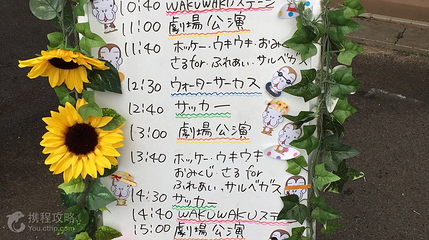 10:40 WAKUWAKUステージ
11:00 劇場公演
11:40 ホッケー・ウキウキ・おみくじ
さる for ふれあい、サルバガス
12:30 ウォーターサーカス
12:40 サッカー
13:00 劇場公演
13:40 ホッケー・ウキウキ
おみくじ・さる for
ふれあい、サルバガス
14:30 サッカー
14:40 WAKUWAKUステ
15:00 劇場公演
携程攻略
You.ctrip.com